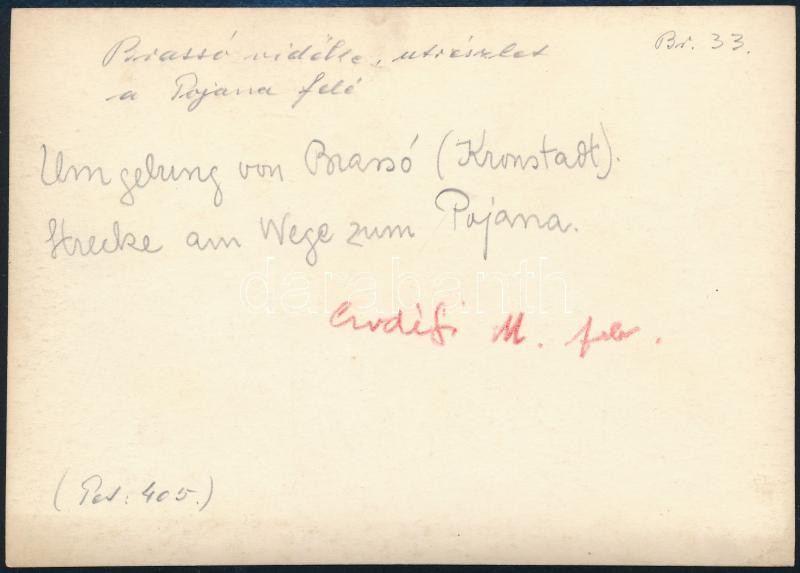 Brassó vidéke, utrészlet
Br. 33.
a Pojana felé
Umgebung von Brassó (Kronstadt).
Strecke am Wege zum Pojana.
darabanth
M. felv.
405.)